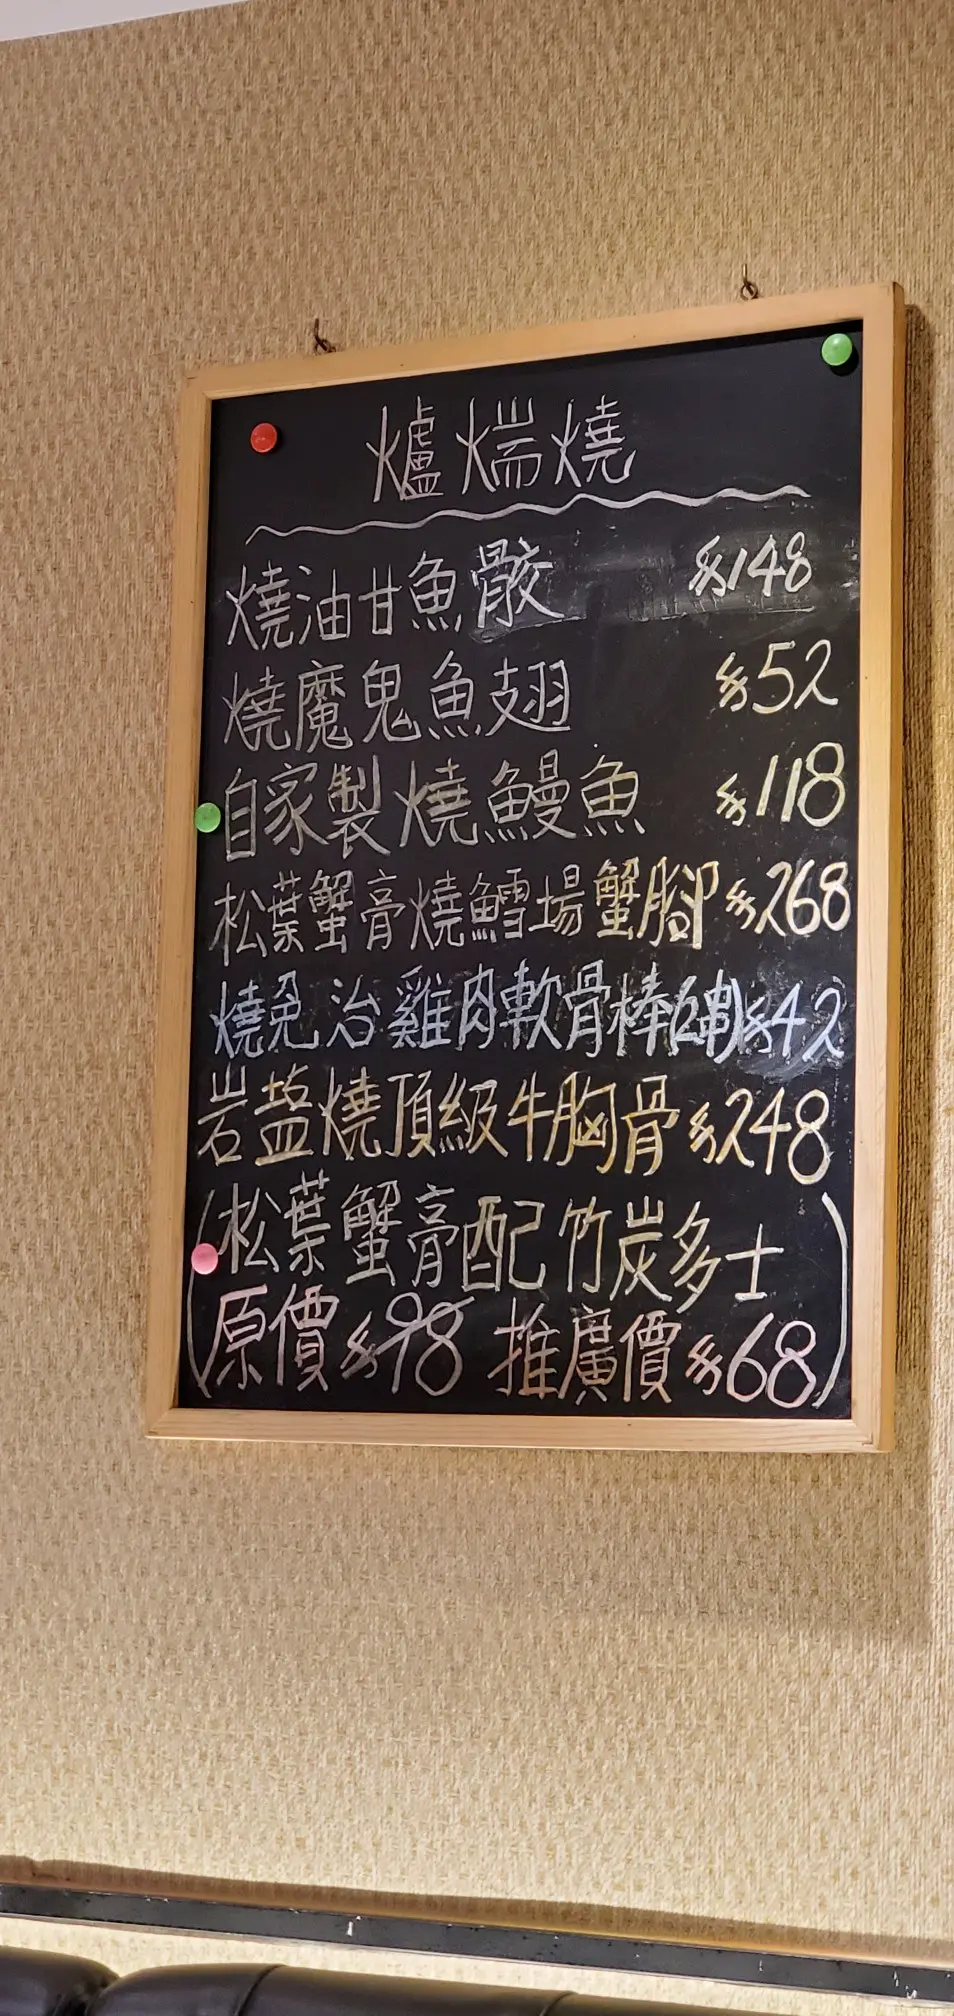 爐端燒
燒油甘魚骹 $148
燒魔鬼魚翅 $52
自家製燒鰻魚 $118
松葉蟹膏燒鱈場蟹腳 $268
燒免治雞肉軟骨棒(2串) $42
岩盐燒頂級牛胸骨 $248
(松葉蟹膏配竹炭多士
原價$98 推廣價$68)